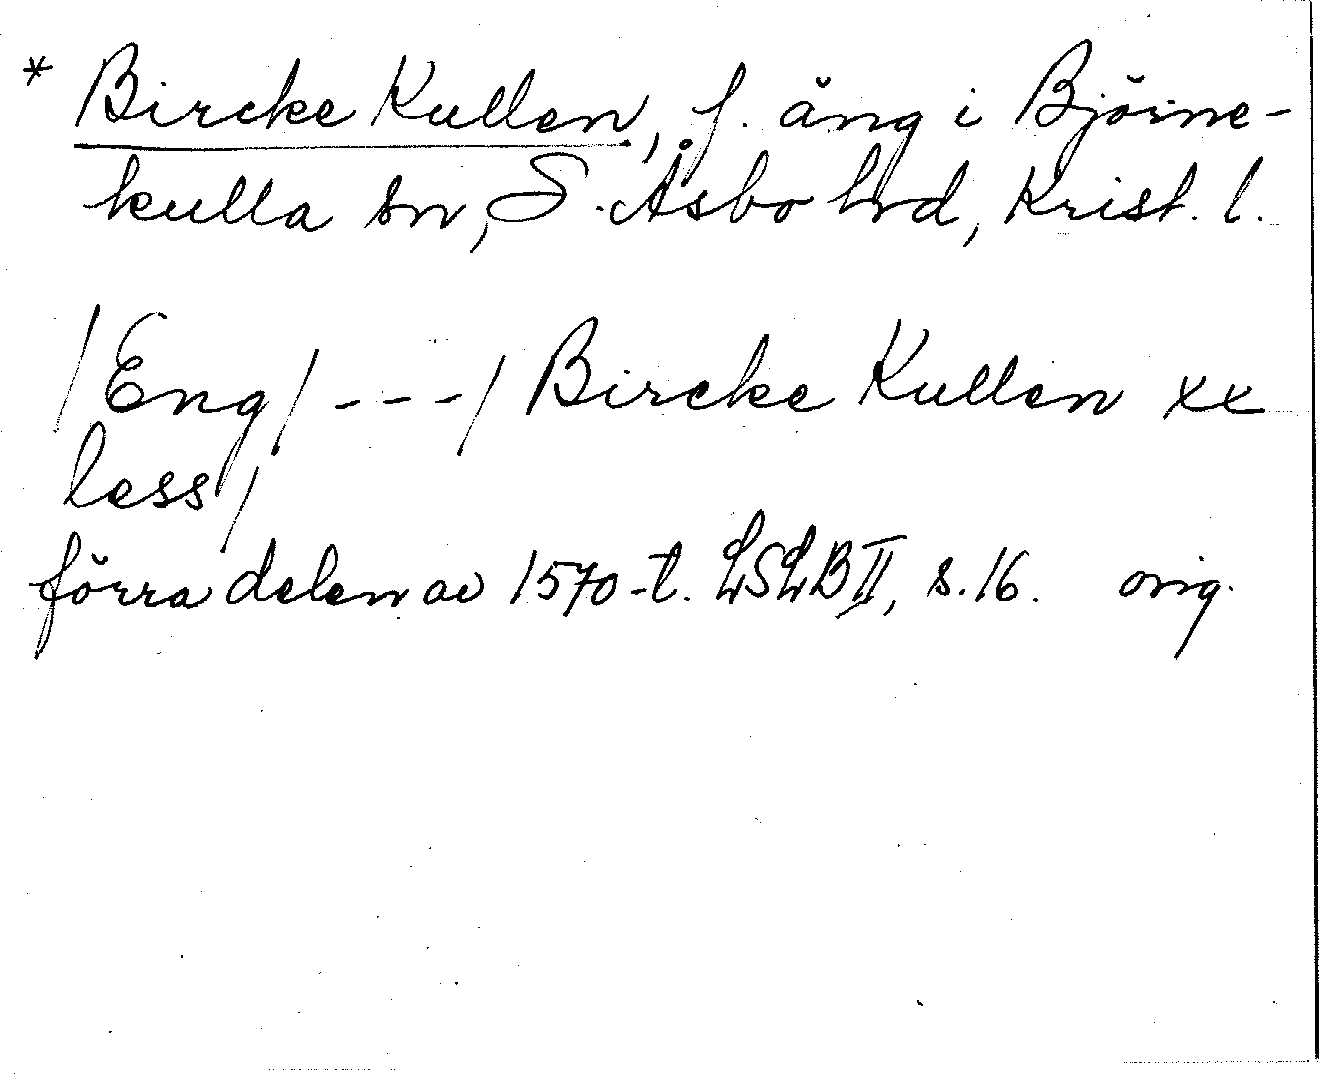 * Bircke Kullen, f. äng i Björne-
kulla sn, S. Åsbo hrd, Krist. l.
/Eng/---/ Bircke Kullen xx
less/
förra delen av 1570-t. LSLB II, s. 16. orig.